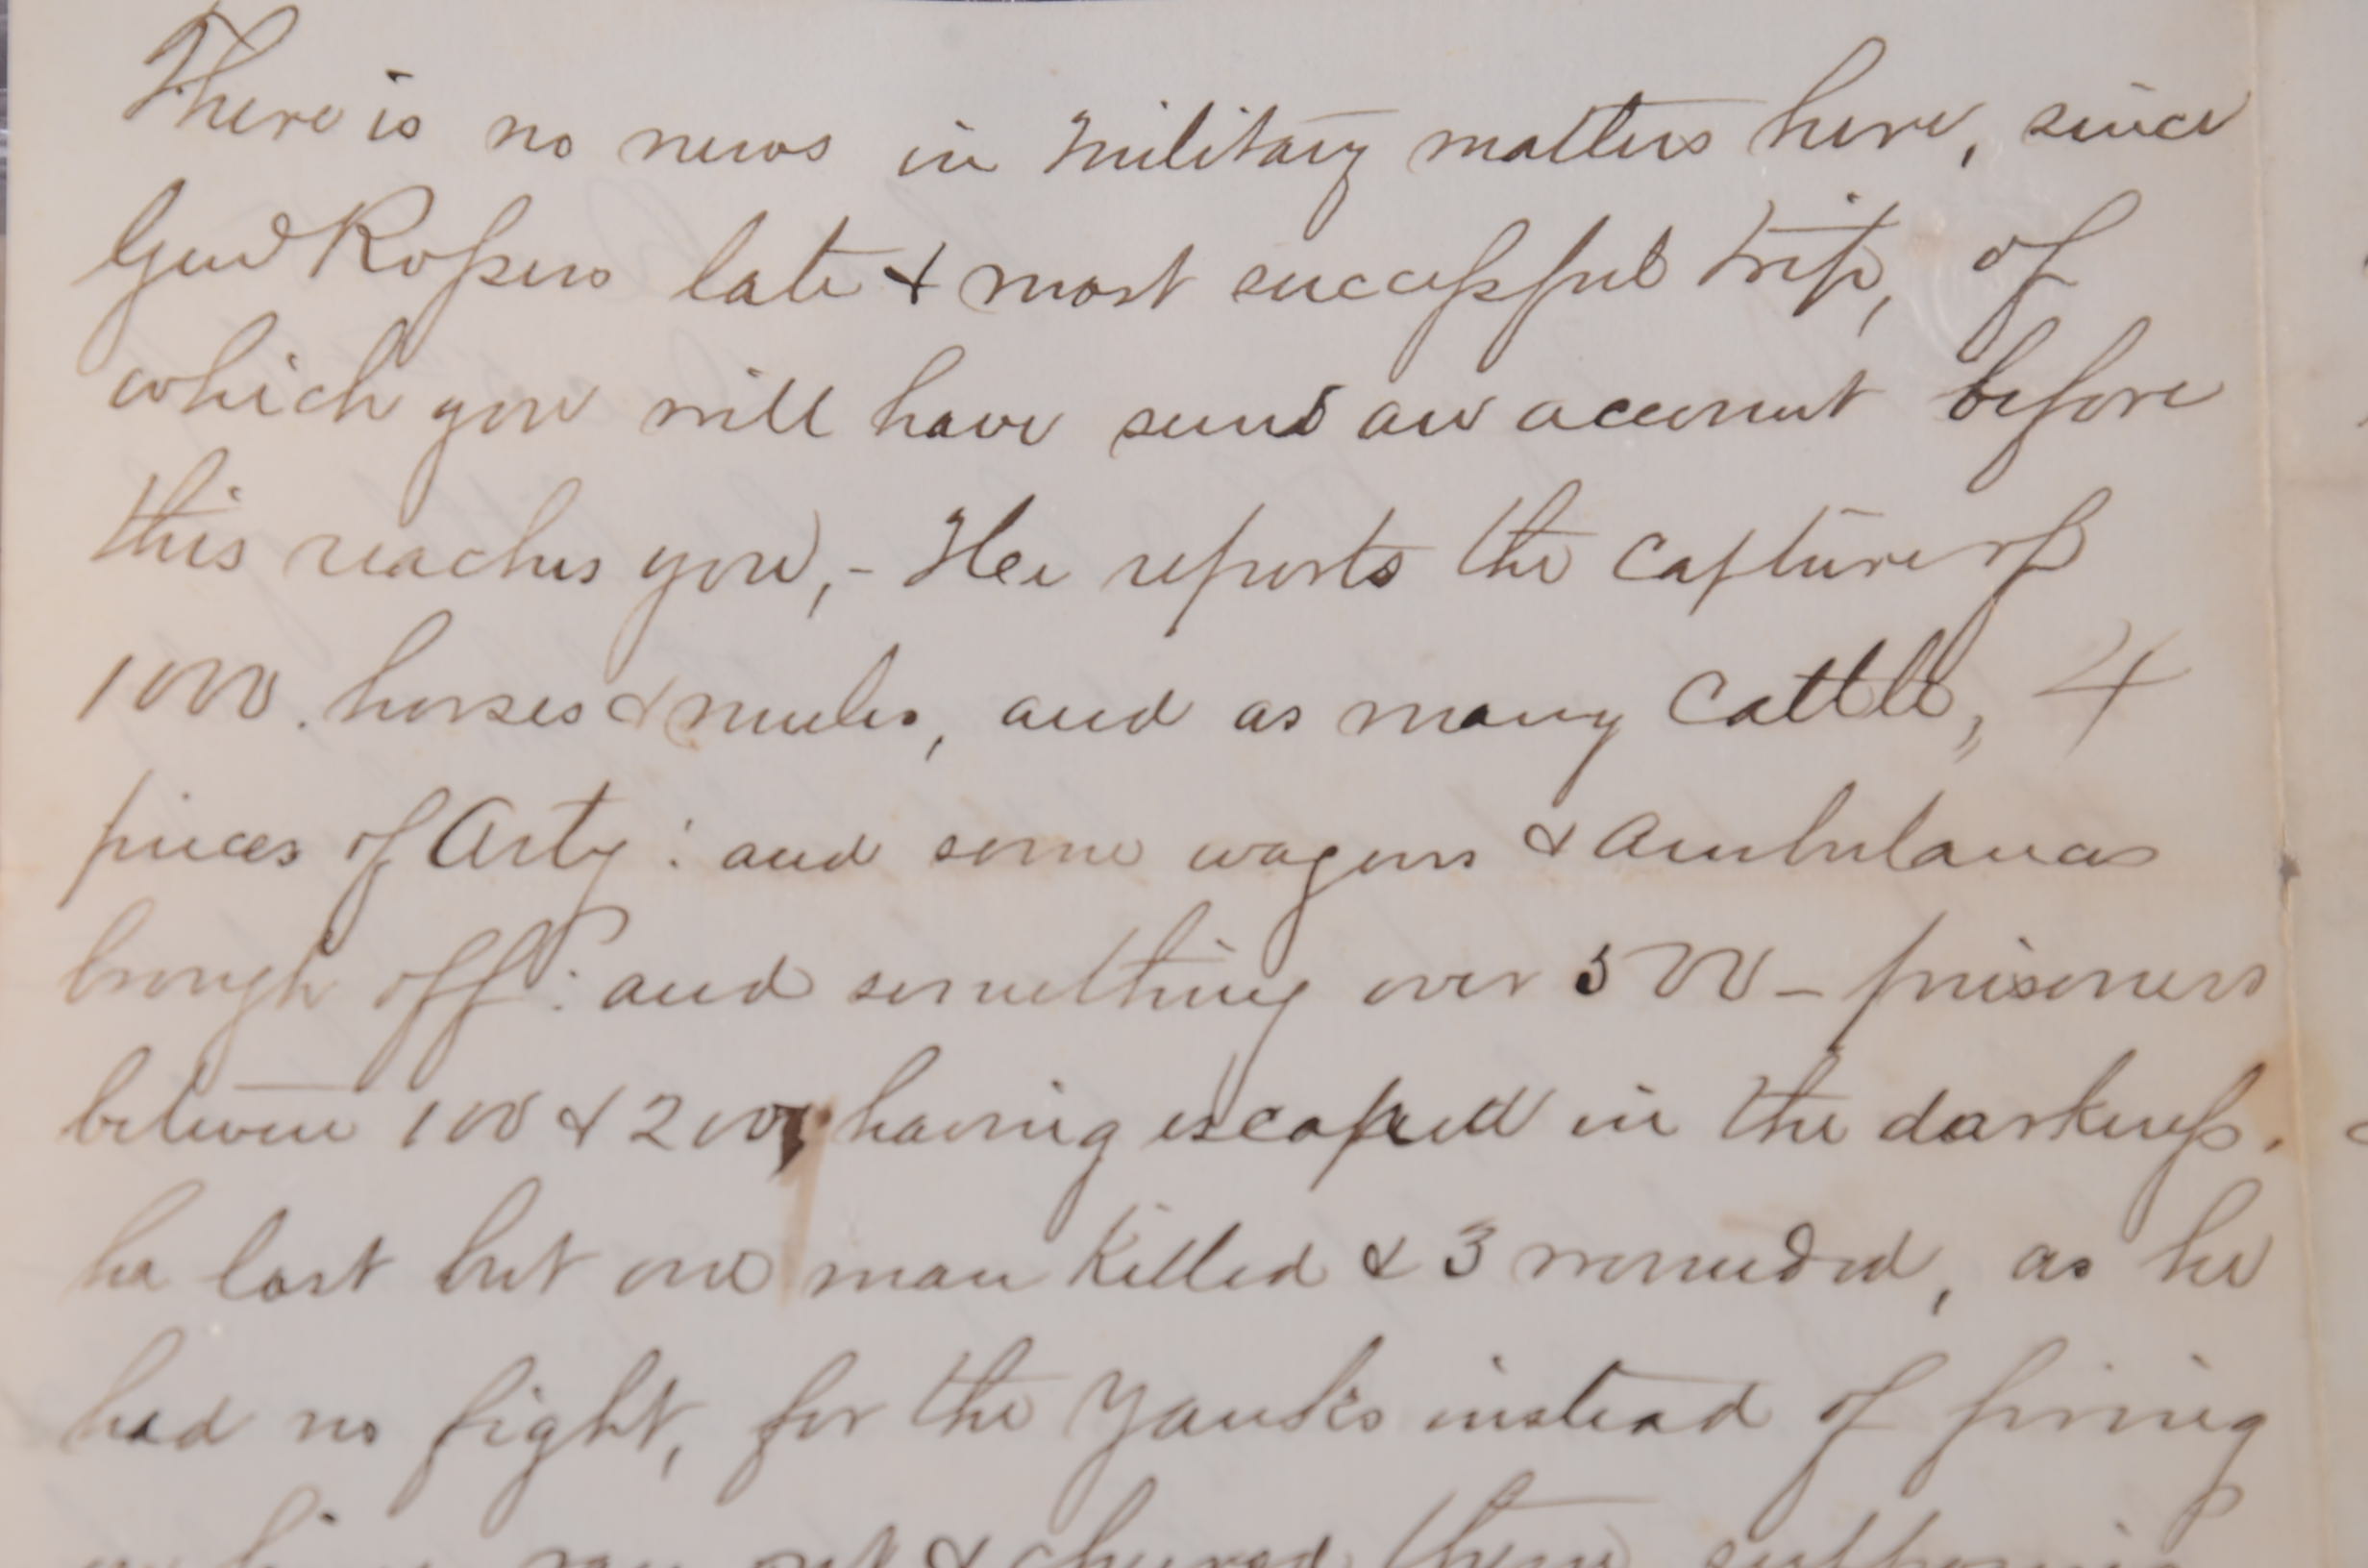 There is no news in Military matters here, since
Genl Rossers late & most successful trip, of
which you will have seen an account before
this reaches you,- He reports the capture of
1000. horses & mules, and as many Cattle, 4
pieces of Arty: and some wagons & Ambulances
brough off: and something over 500 - prisoners
between 100 & 200, having escaped in the darkness.
he lost but one man Killed & 3 wounded, as he
had no fight, for the Yanks instead of firing
on him ran out & cheered them